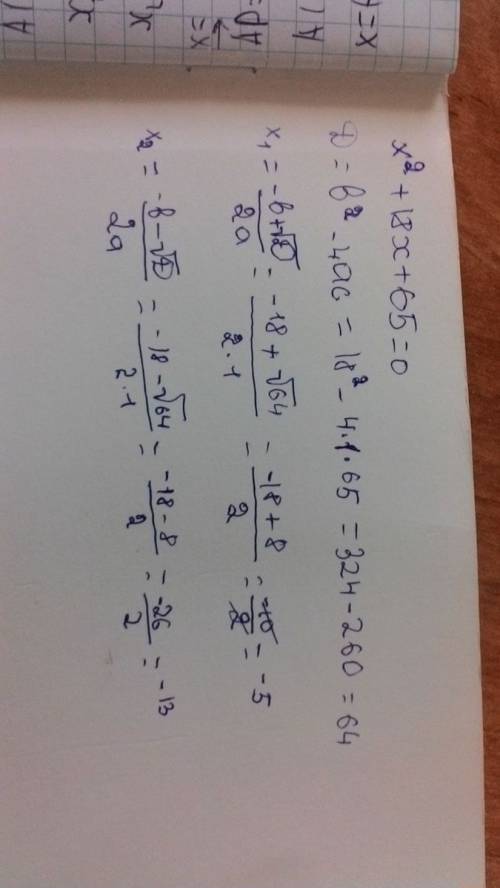 x² + 18x + 65 = 0
D = b² - 4ac = 18² - 4·1·65 = 324 - 260 = 64
x₁ = (-b+√D)/2a = (-18+√64)/2·1 = (-18+8)/2 = -10/2 = -5
x₂ = (-b-√D)/2a = (-18-√64)/2·1 = (-18-8)/2 = -26/2 = -13